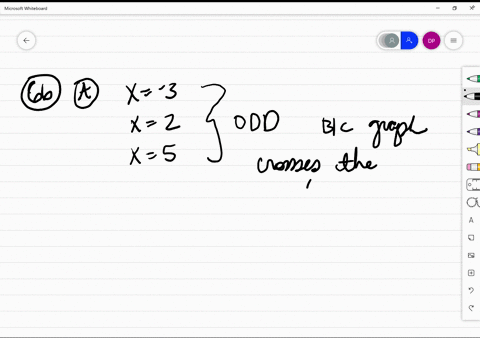 Microsoft Whiteboard
DP
60 A x = -3
x = 2
x = 5
ODD B/C graph
crosses the